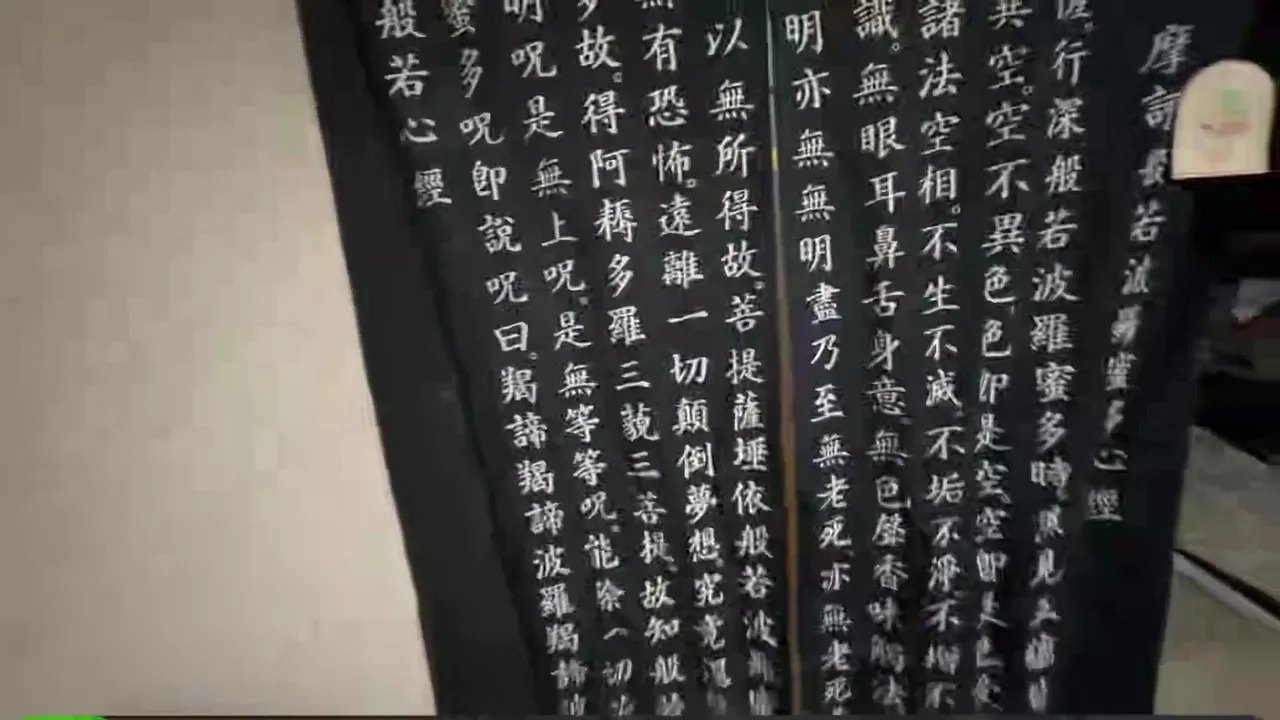 摩訶般若波羅蜜多心經
行深般若波羅蜜多時。照見五蘊
異空。空不異色。色即是空。空即是色
諸法空相。不生不滅。不垢不淨。不增不
識。無眼耳鼻舌身意無色聲香味觸法
明亦無無明盡乃至無老死亦無老死
以無所得故。菩提薩埵依般若波羅
無有恐怖。遠離一切顛倒夢想。究竟涅
多故。得阿耨多羅三藐三菩提。故知般若
明呪是無上呪。是無等等呪。能除一切
蜜多呪卽說呪曰。羯諦羯諦波羅羯諦波
般若心經